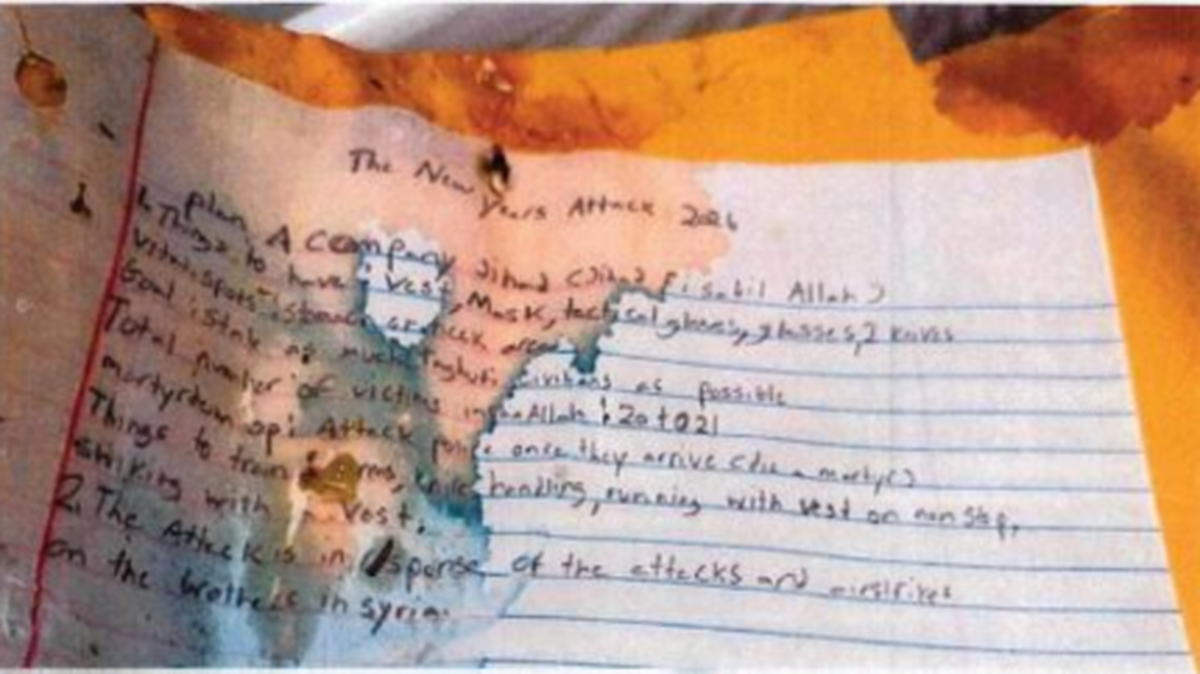 The New Years Attack 2026
1. plan A Company Jihad (Jihad fi sabil Allah)
Things to have: vest, Mask, tactical gloves, glasses, 2 knives
Vital spots: stomach or neck area
Goal: stab as much civilians as possible
Total number of victims inshaAllah: 20 to 21
martyrdom op: Attack police once they arrive (die a martyr)
Things to train: knife handling, running with vest on non stop,
striking with vest.
2. The Attack is in of the attacks and airstrikes
on the brothers in syria.